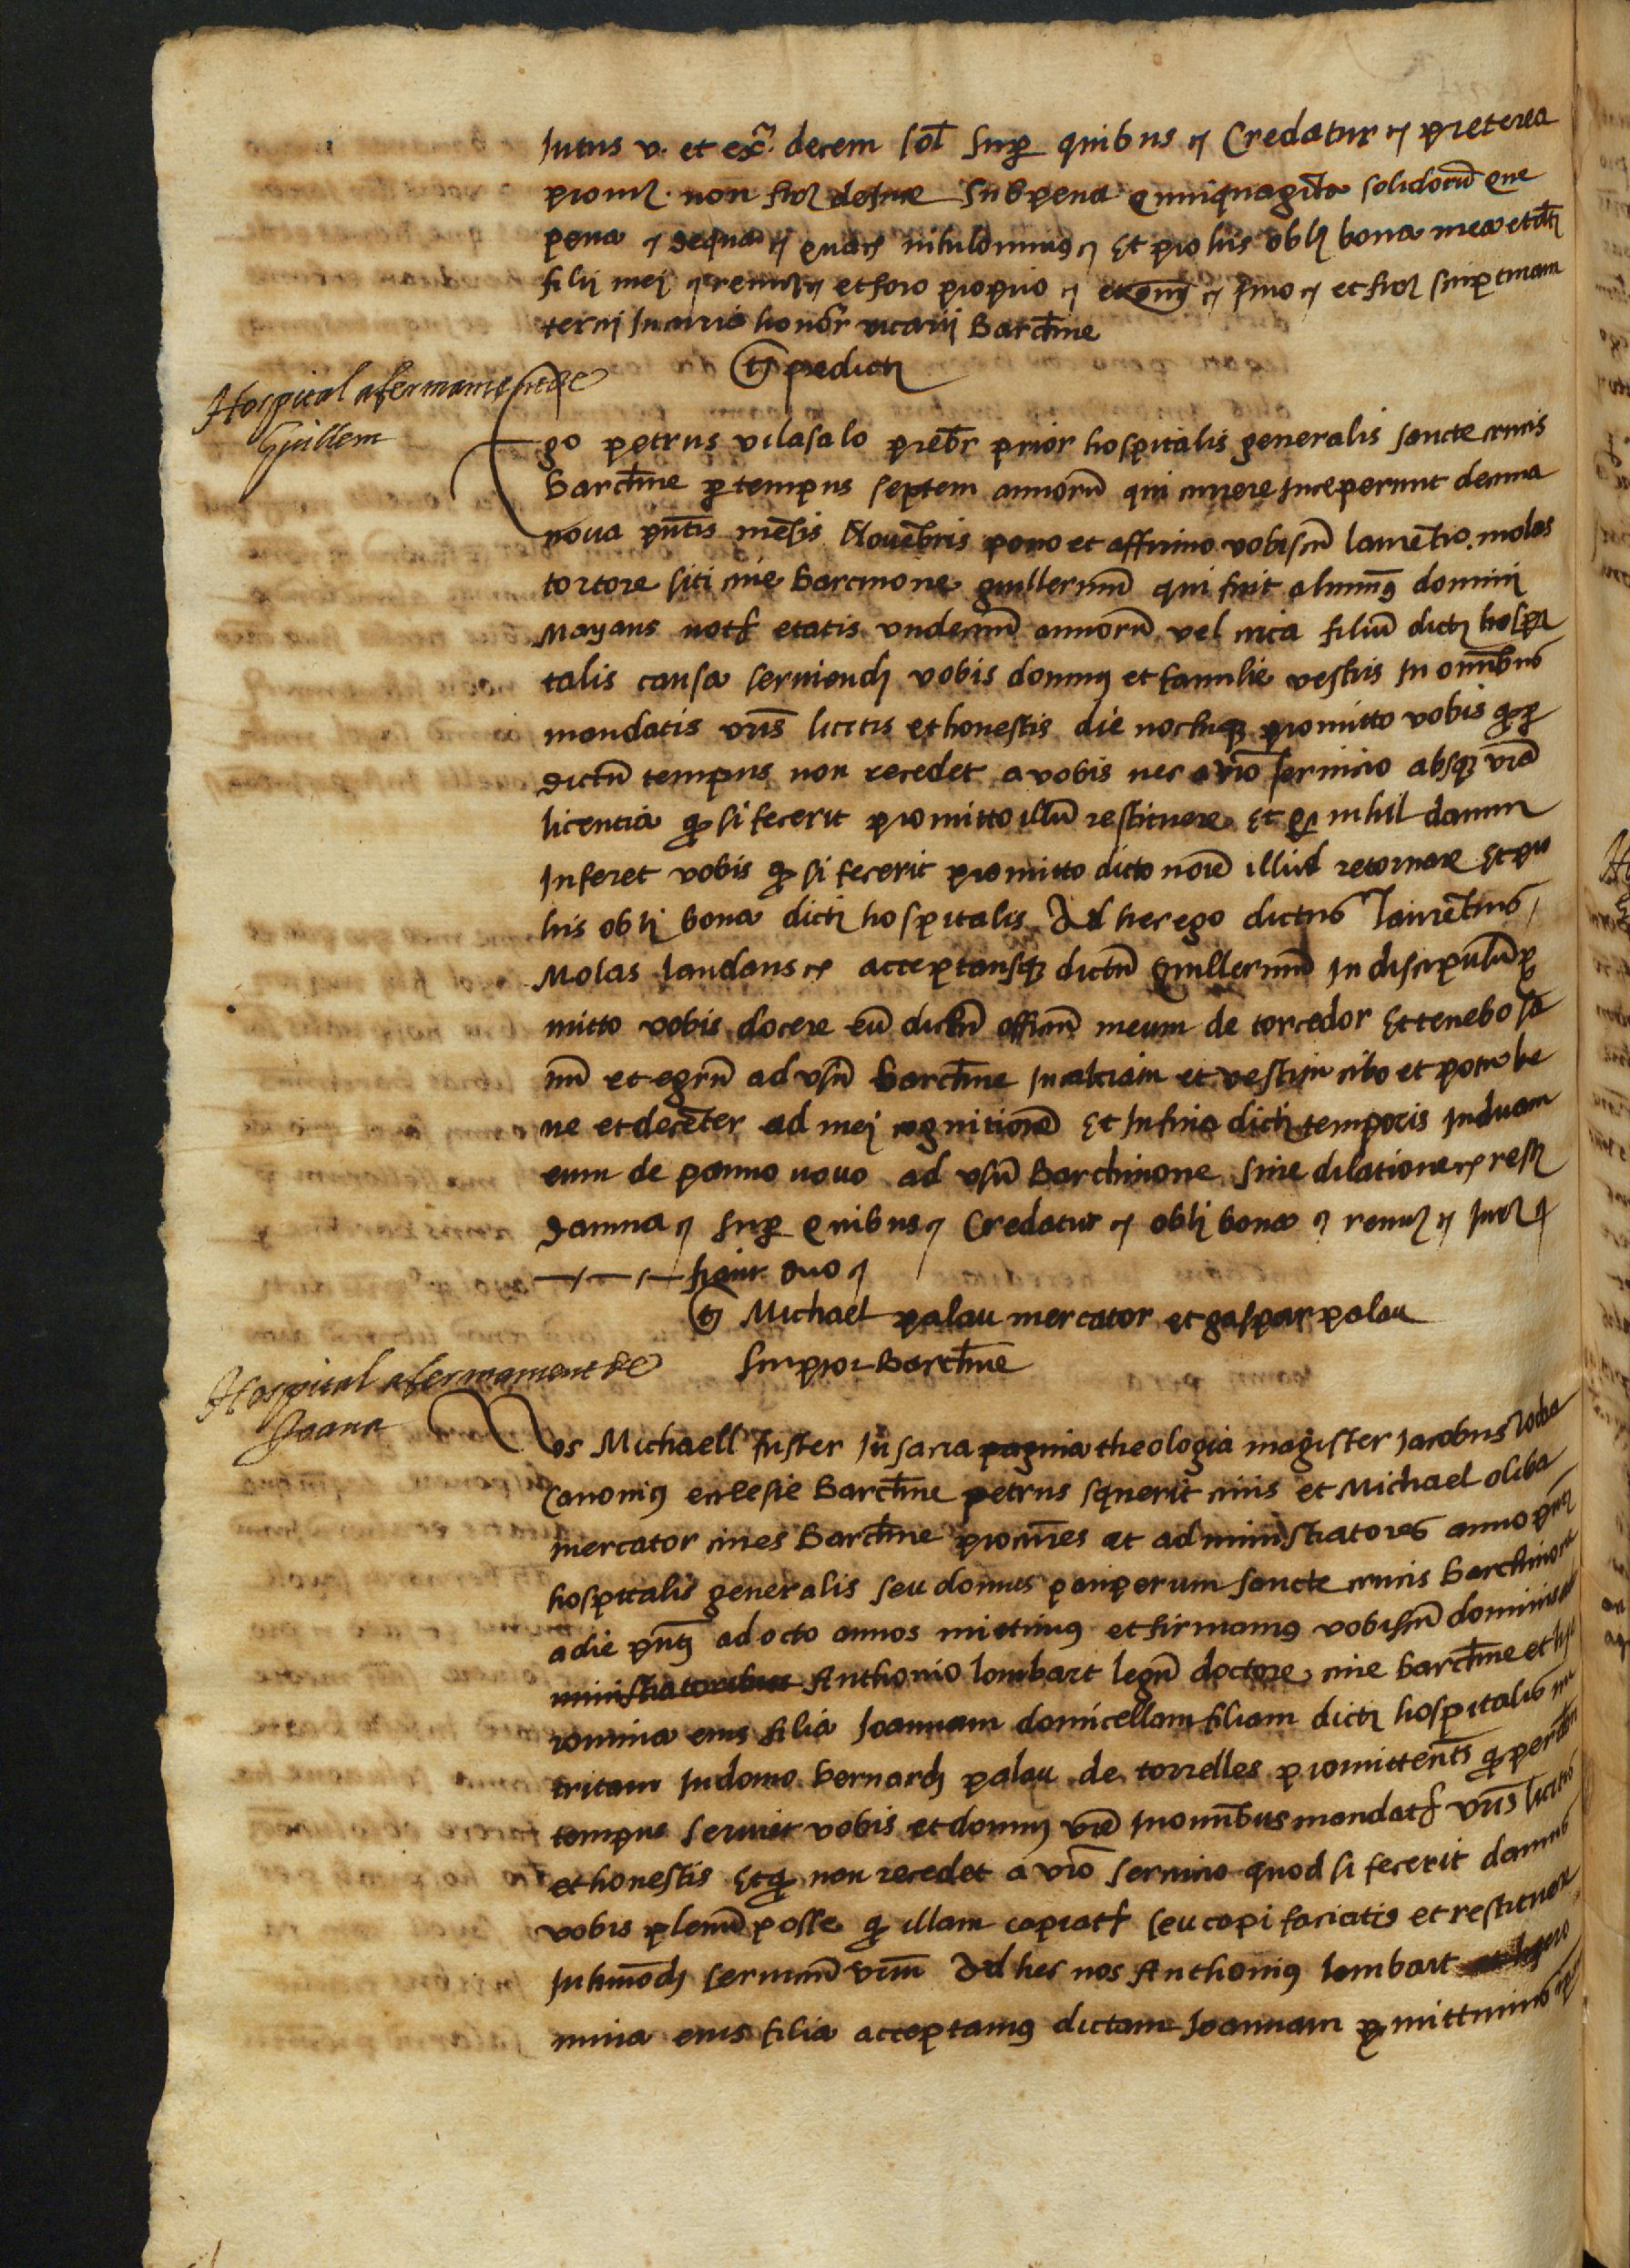 Intus v. et ex̃. decem sol̃ sup quibus ⁊ Credatur ⁊ preterea
promiʒ non firʒ desuꝛ sub pena quinquaginta solidorũ que
pena ⁊ de qua ⁊ nihilominus ⁊ Et pro his oblʒ bona mea et dicti
filij mei ⁊ renuʒ ⁊ et foro proprio ⁊ et ⁊ juro ⁊ et firʒ scripturam
tercij In curia honor̃ vicarij Barchne
tʒ predicti
Hospital afermament de
Guillem
Ego petrus vilasalo prebr̃ prior hospitalis generalis sancte crucis
Barchne p tempus septem annorũ qui currere Inceperunt decima
nova pñtis mẽsis Novẽbris pono et affirmo vobiscũ laurẽtio molas
tortore siti cive barcinone guillermũ qui fuit alumnꝰ domini
Mayans not etatis undecim annorũ vel circa filiũ dicti hospi
talis causa serviendi vobis domuj et familie vestris In omnibus
mandatis vr̃is licitis et honestis die noctuqʒ promitto vobis q p
dictũ tempus non recedet a vobis nec a vr̃o servicio absqʒ vr̃a
licentia q si fecerit promitto illũ restituere Et q nihil damni
Inferet vobis q si fecerit promitto dicto noĩe illud retornare Et pro
his oblʒ bona dicti hospitalis Ad hec ego dictus laurẽtius
Molas laudans ⁊ acceptansqʒ dictũ Guillermũ In discipulũ p
mitto vobis docere eũ dictũ officiũ meum de torcedor Et tenebo sa
nũ et egrũ ad usũ barchne In calciatu et vestitu cibo et potu be
ne et decẽter ad mei cognitionẽ Et In fine dicti temporis Induam
eum de panno novo ad usũ Barchinone sine dilatione ⁊ resʒ
damna ⁊ sup quibus ⁊ Credatur ⁊ oblʒ bona ⁊ renuʒ ⁊ Jurʒ ⁊
fiant duo ⁊
tʒ Michael palau mercator et gaspar palau
scriptor Barchne
Hospital afermament de
Joana
Nos Michaell fuster In sacra pagina theologia magister Jacobus
Canonicꝰ ecclesie Barchne petrus squerit civis et Michael oliba
mercator cives Barchne procur̃es et administratores anno pñti
hospitalis generalis seu domus pauperum sancte crucis barchinone
a die pñti ad octo annos mittimꝰ et firmamꝰ vobiscũ dominis
ministratoribus Anthonio lombart legũ doctore cive barchne et hye
romina eius filia Joannam domicellam filiam dicti hospitalis nu
tritam In domo bernardi palau de torrelles promittentes q per dictũ
tempus serviet vobis et domuj vr̃e In omnibus mandatis vr̃is licitis
et honestis Et q non recedet a vr̃o servicio quod si fecerit damus
vobis plenũ posse q illam capiatis seu capi faciatis et restituere
In humõdi serviciũ vr̃m Ad hec nos Anthoniꝰ lombart et hyero
mina eius filia acceptamꝰ dictam Joannam p mittimus